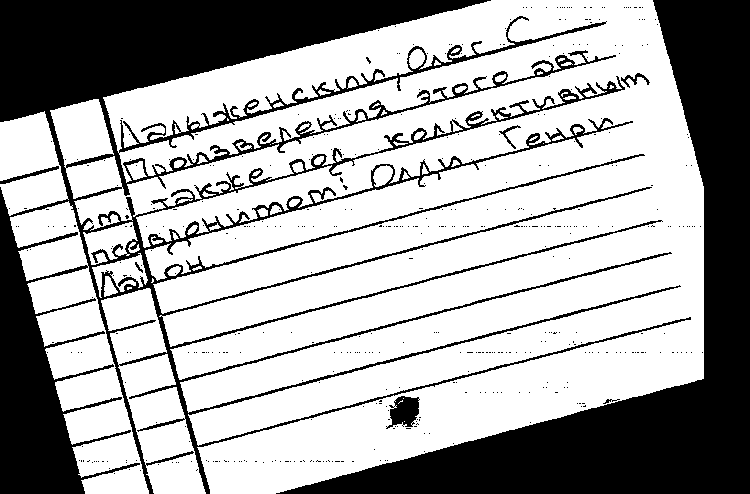 Ладыженский, Олег С
Произведения этого авт.
см. также под коллективным
псевдонимом: Олди, Генри
Лайон.